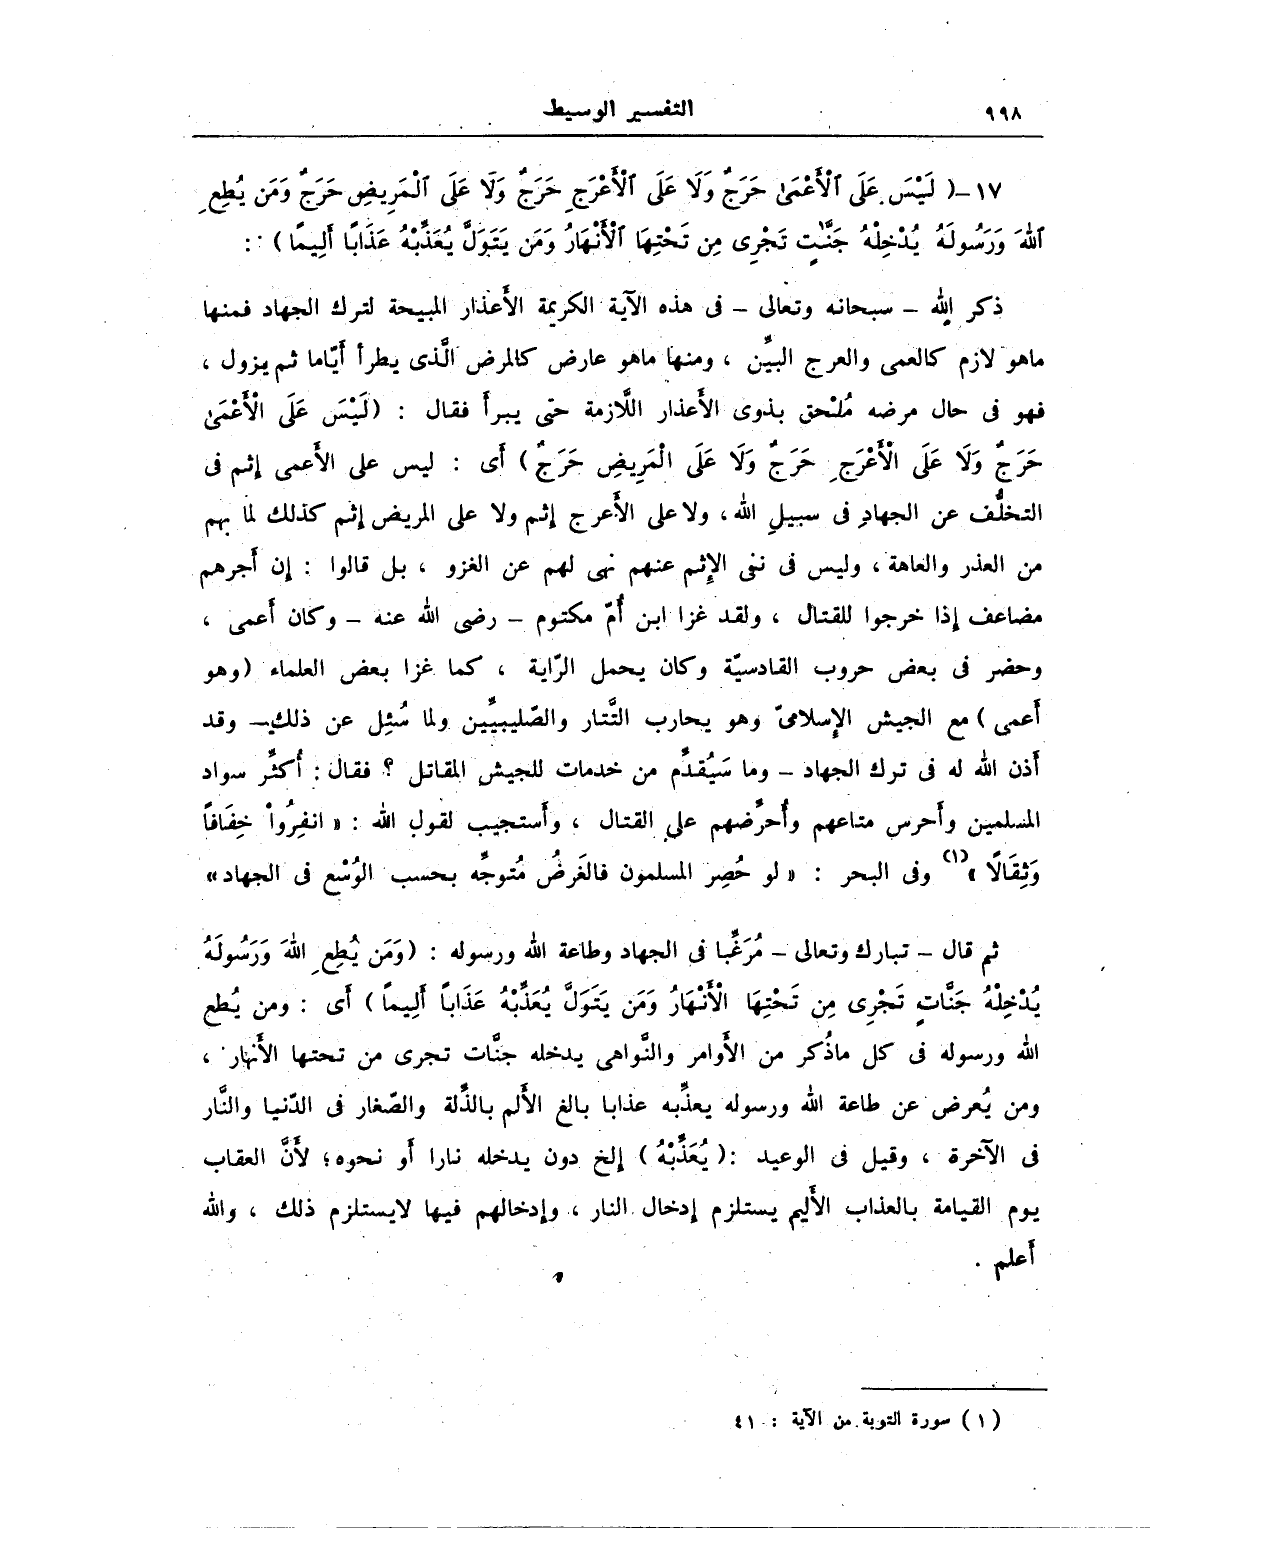 ٩٩٨
التفسير الوسيط
١٧-( لَيْسَ عَلَى ٱلْأَعْمَىٰ حَرَجٌ وَلَا عَلَى ٱلْأَعْرَجِ حَرَجٌ وَلَا عَلَى ٱلْمَرِيضِ حَرَجٌ وَمَن يُطِعِ
ٱللَّهَ وَرَسُولَهُ يُدْخِلْهُ جَنَّٰتٍ تَجْرِى مِن تَحْتِهَا ٱلْأَنْهَارُ وَمَن يَتَوَلَّ يُعَذِّبْهُ عَذَابًا أَلِيمًا ) :
ذكر الله – سبحانه وتعالى – فى هذه الآية الكريمة الأَعذار المبيحة لترك الجهاد فمنها
ماهو لازم كالعمى والعرج البيِّن ، ومنها ماهو عارض كالمرض الَّذى يطرأ أَيّاما ثم يزول ،
فهو فى حال مرضه مُلْحق بذوى الأَعذار اللَّازمة حتى يبرأَ فقال : (لَيْسَ عَلَى الْأَعْمَىٰ
حَرَجٌ وَلَا عَلَى الْأَعْرَجِ حَرَجٌ وَلَا عَلَى الْمَرِيضِ حَرَجٌ) أَى : ليس على الأَعمى إثم فى
التخلُّف عن الجهادِ فى سبيلِ الله ، ولا على الأَعرج إثم ولا على المريض إثم كذلك لما بهم
من العذر والعاهة ، وليس فى نفى الإِثم عنهم نهى لهم عن الغزو ، بل قالوا : إن أَجرهم
مضاعف إذا خرجوا للقتال ، ولقد غزا ابن أُمّ مكتوم – رضى الله عنه – وكان أَعمى ،
وحضر فى بعض حروب القادسيّة وكان يحمل الرّاية ، كما غزا بعض العلماء (وهو
أَعمى ) مع الجيش الإِسلامىّ وهو يحارب التَّتار والصّليبيِّين ولما سُئِل عن ذلك – وقد
أَذن الله له فى ترك الجهاد – وما سَيُقدِّم من خدمات للجيش المقاتل ؟ فقال : أُكثِّر سواد
المسلمين وأَحرس متاعهم وأُحرِّضهم على القتال ، وأَستجيب لقول الله : « انفِرُواْ خِفَافاً
وَثِقَالًا » (١) وفى البحر : « لو حُصِر المسلمون فالغَرضُ مُتوجِّه بحسب الوُسْع فى الجهاد»
ثم قال – تبارك وتعالى – مُرَغِّبا فى الجهاد وطاعة الله ورسوله : (وَمَن يُطِعِ اللهَ وَرَسُولَهُ
يُدْخِلْهُ جَنَّاتٍ تَجْرِى مِن تَحْتِهَا الْأَنْهَارُ وَمَن يَتَوَلَّ يُعَذِّبْهُ عَذَاباً أَلِيماً ) أَى : ومن يُطع
الله ورسوله فى كل ماذُكر من الأَوامر والنَّواهى يدخله جنَّات تجرى من تحتها الأَنهار ،
ومن يُعرض عن طاعة الله ورسوله يعذِّبه عذابا بالغ الأَلم بالذِّلة والصّغار فى الدّنيا والنَّار
فى الآخرة ، وقيل فى الوعيد : ( يُعَذِّبْهُ ) إلخ دون يدخله نارا أَو نحوه ؛ لأَنَّ العقاب
يوم القيامة بالعذاب الأَليم يستلزم إدخال النار ، وإدخالهم فيها لايستلزم ذلك ، والله
أَعلم .
(١) سورة التوبة من الآية : ٤١